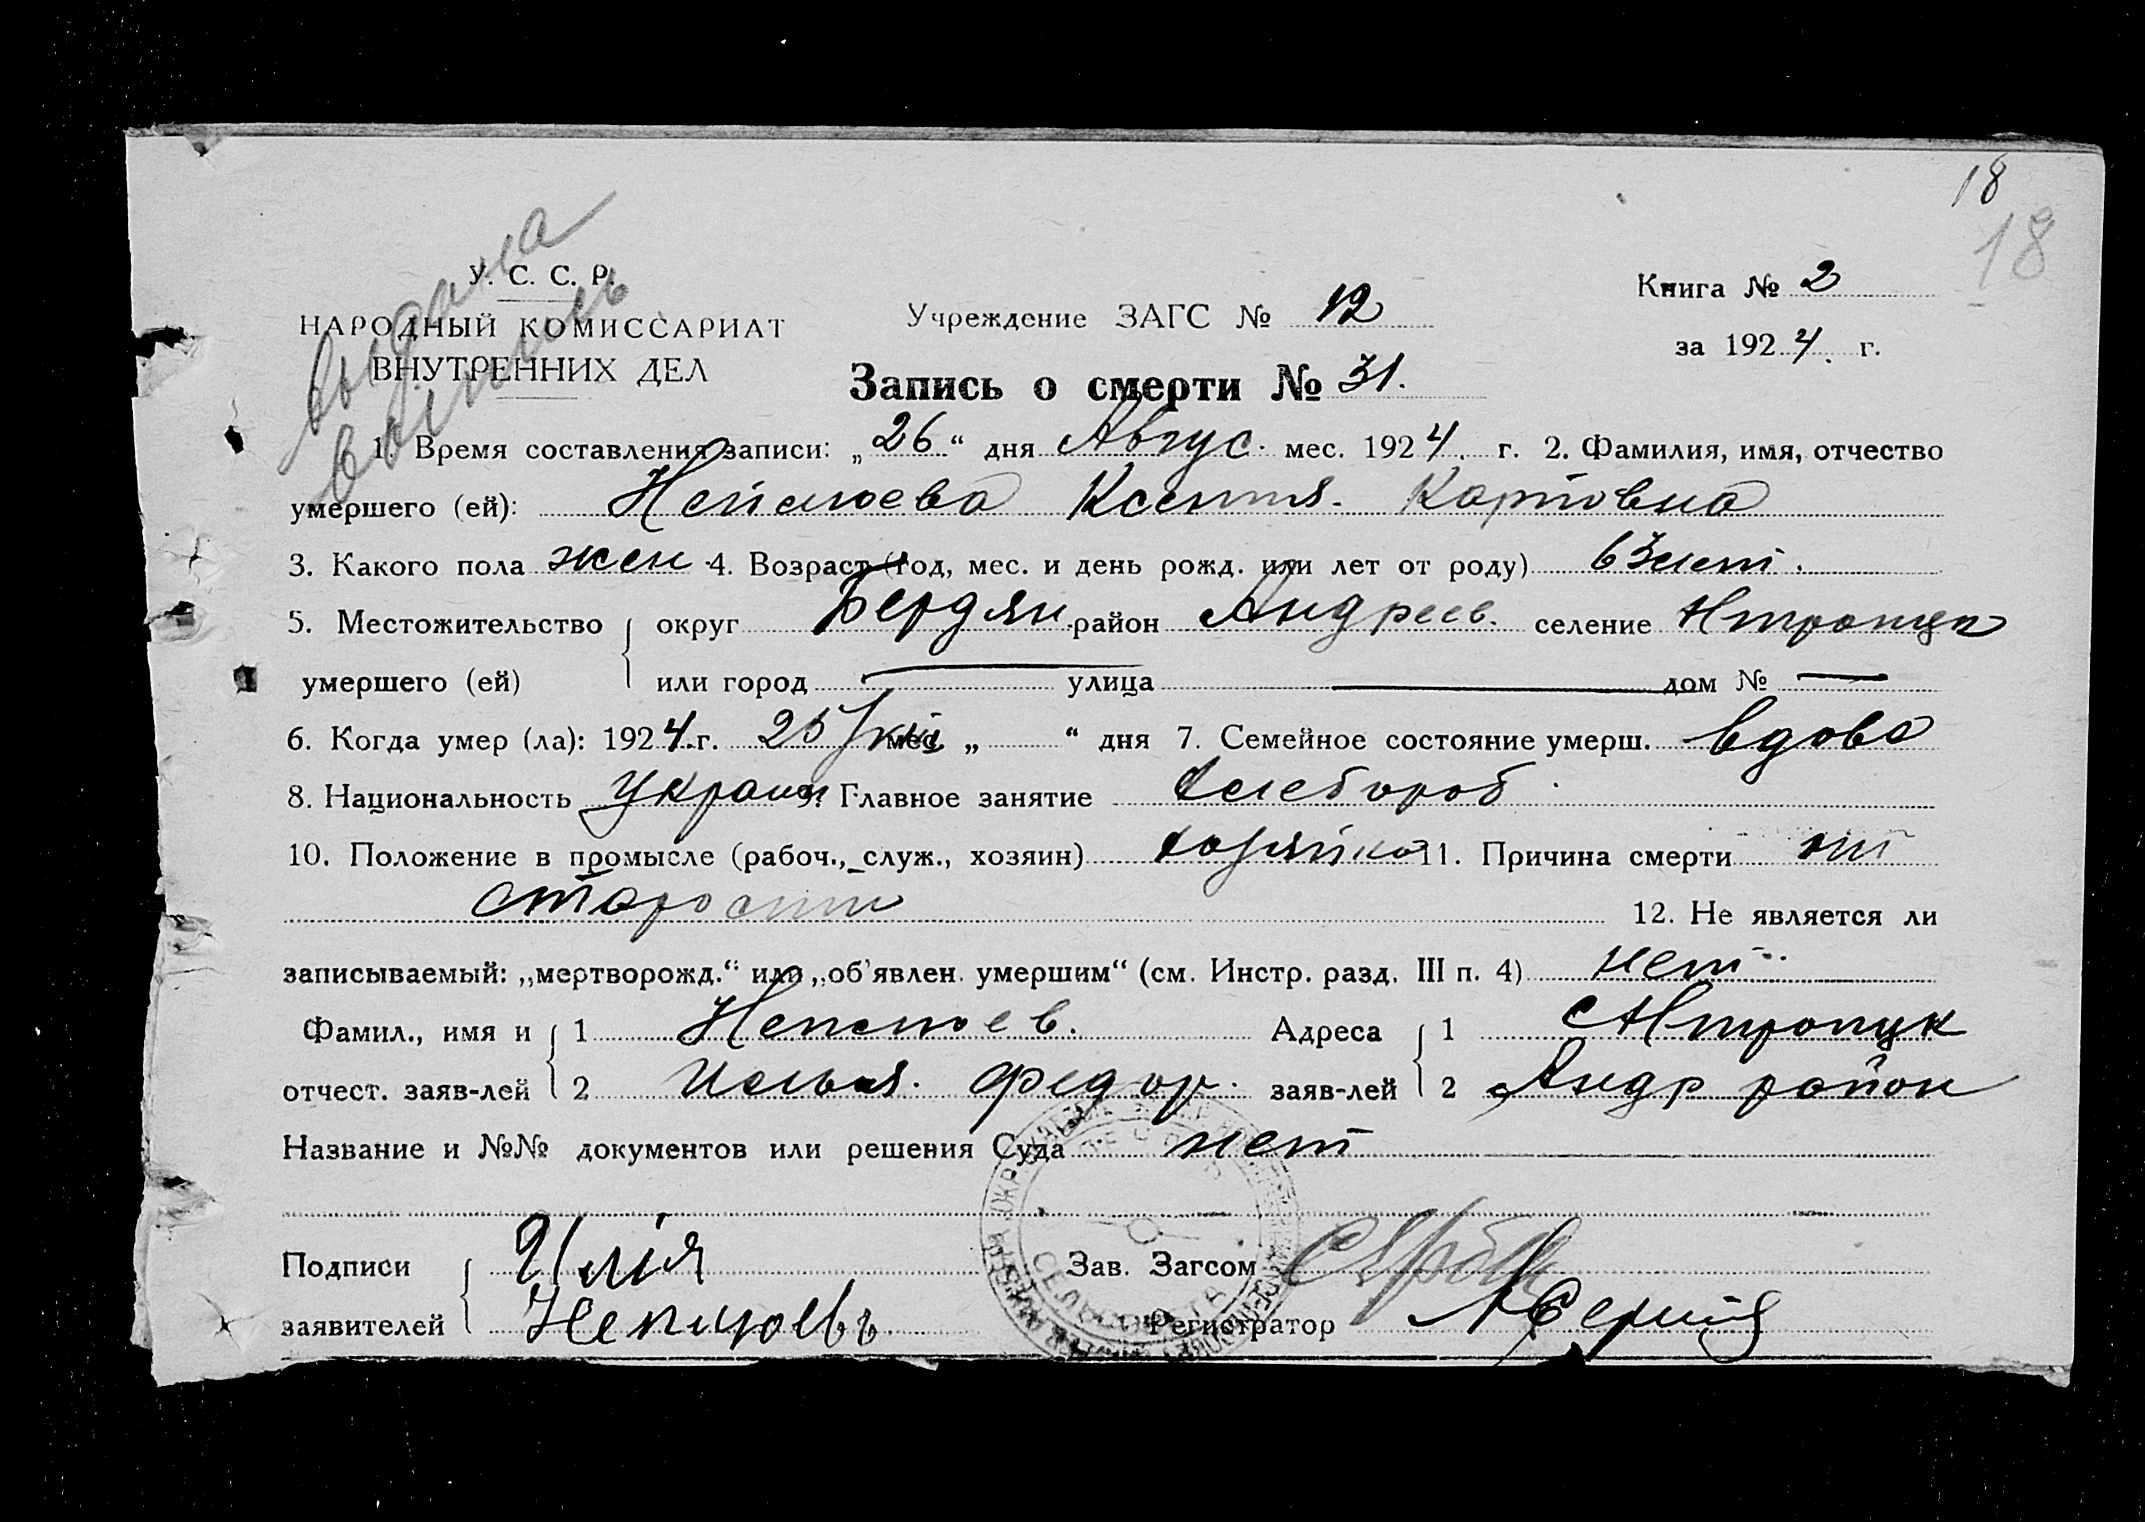 18
18
выдана
выпись
У. С. С. Р.
НАРОДНЫЙ КОМИССАРИАТ
ВНУТРЕННИХ ДЕЛ
Учреждение ЗАГС № 12
Книга № 2
за 1924. г.
Запись о смерти № 31.
1. Время составления записи: „26“ дня Авгус. мес. 1924. г. 2. Фамилия, имя, отчество
умершего (ей): Неплюева Ксения. Карповна
3. Какого пола жен 4. Возраст (год, мес. и день рожд. или лет от роду) 63 лет.
5. Местожительство округ Бердян. район Андреев. селение
умершего (ей) или город — улица — дом № —
6. Когда умер (ла): 1924.г. 25 мес. „ “ дня 7. Семейное состояние умерш. вдова
8. Национальность украин 9. Главное занятие хлебороб.
10. Положение в промысле (рабоч., служ., хозяин) хозяйка 11. Причина смерти от
старости 12. Не является ли
записываемый: „мертворожд.“ или „об'явлен. умершим“ (см. Инстр. разд. III п. 4) нет
Фамил., имя и 1 Неплюев. Адреса 1
отчест. заяв-лей 2 Илья. Федор. заяв-лей 2 Андр район
Название и №№ документов или решения Суда нет
Подписи Илія Зав. Загсом
заявителей Неплюевъ Регистратор